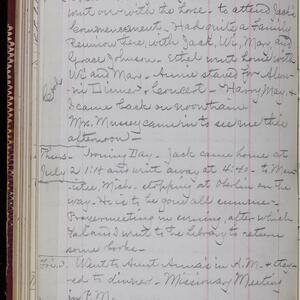 went on with the Love. to attend Jack's
Commencement. Had quite a Family
Reunion here, with Jack, Will, Mary and
Grace Johnson. Ethel went home with
Will and Mary. Annie stayed for Alum-
ni Dinner & Concert. Harry, May, &
I came back on noon train
Mrs. Mussey came in to see me this
afternoon.
Thurs. Ironing Day. Jack came home at
July 2 11:14 and went away at 4:40. to Man-
istee, Mich. stopping at Oberlin on the
way. He is to be gone all summer.
Prayermeeting in evening, after which
and I went to the Library to return
some books.
Frid. Went to Aunt Anna's in A.M. & stay-
ed to dinner. Missionary Meeting
in P.M.